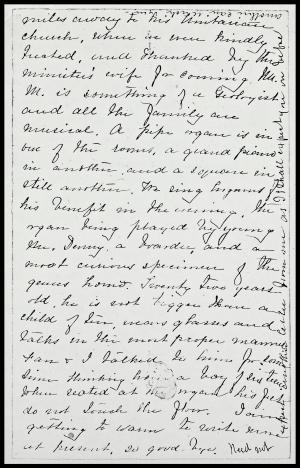 miles away to his Unitarian
church, where we were kindly
treated, and thanked by the
minister's wife for coming. Mr.
M. is something of a Geologist
and all the family are
musical. A pipe organ is in
one of the rooms, a grand piano
in another and a square in
still another. We sing hymns for
his benefit in the evening, the
organ being played by young
Mr. Denny, a boarder, and a
most curious specimen of the
genus homo. Twenty two years
old, he is not bigger than a
child of ten, wears glasses and
talks in the most proper manner.
Fan & I talked to him for some
time thinking him a boy of sixteen.
When seated at the organ his feet
do not touch the floor. I am
getting to warm to write more
at present, so good bye. Need not
expect another letter from me as I shall expect you on